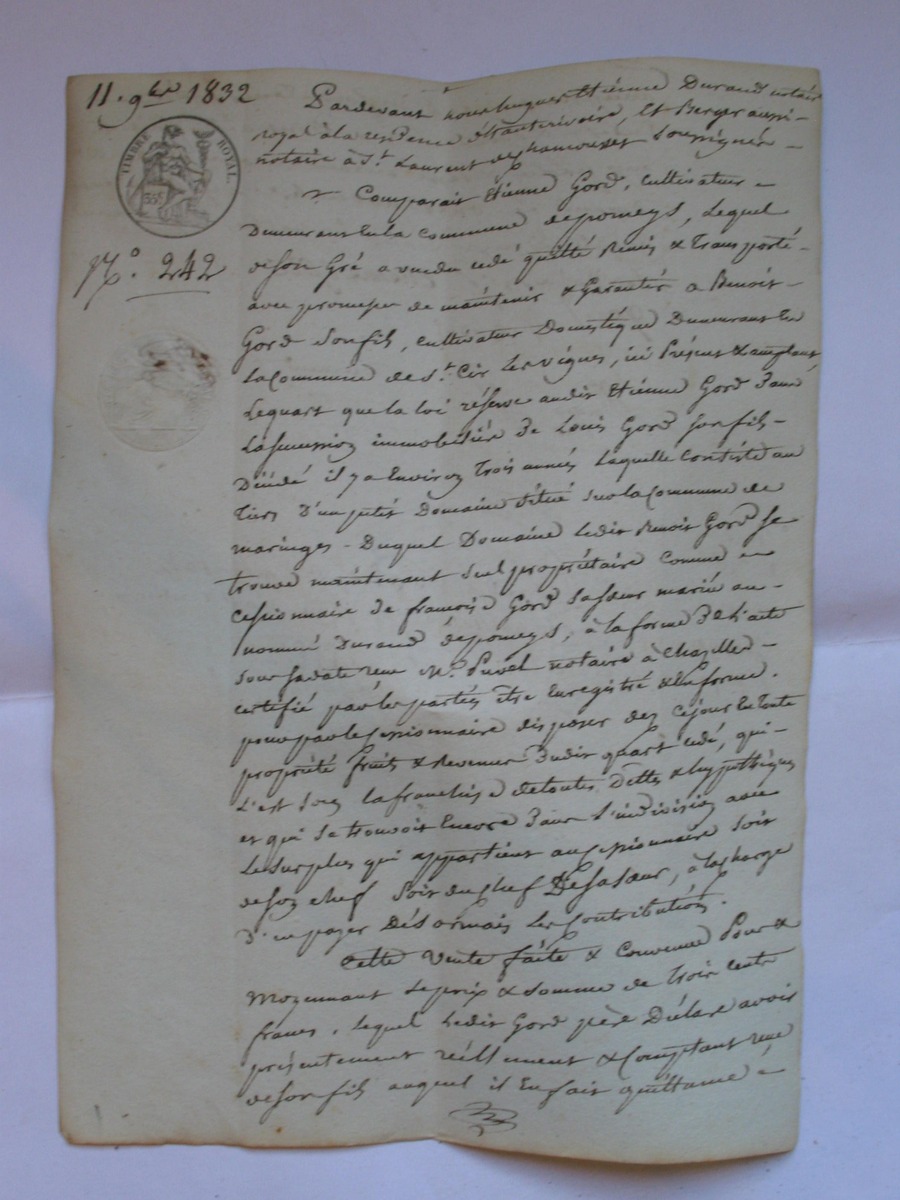 11. 9bre 1832
TIMBRE ROYAL.
35c
N.o 242
Pardevant nous hugues Etiénne Durand notaire
royal à la residence de hauterivoire, et Berger aussi-
notaire à St. Laurent de chamousset Soussignés -
Comparait Etiénne Gord, cultivateur
Demeurant En la commune de pomeys, Lequel
de son Gré a vendu cédé quitté Remis & Transporté -
avec promesse de maintenir & Garantir a Benoit -
Gord Son fils, cultivateur Doméstique Demeurant En
La Commune de St. Cir Les vignes, ici Présent & acceptant,
Le quart que la loi réserve audit Etiénne Gord Dans
La succession immobiliére De Louis Gord son fils -
Décédé il y a Environ Trois années Laquelle Consiste au
Tiers D'un petit Domaine situé sur la Commune de
maringes - Duquel Domaine Ledit Benoit Gord se
trouve maintenant seul propriétaire comme
cessionnaire de françoise Gord sa sœur mariée au -
nommé Durand de pomeys, à la forme De l'acte
sous sa date reçu Me. notaire à Chazelles -
certifié par les parties être Enregistré & En forme.
pour par le cessionnaire disposer dez ce jour En Toute
propriété fruits & Revenus Dudit quart cédé, qui -
L'est sous la franchise de toutes Dettes & hypothéques
et qui se trouvoit Encore Dans L'indivision avec
Le surplus qui appartient au cessionnaire soit
de son chef soit du chef De sa sœur, à la charge
D'en payer Désormais Les Contributions.
Cette Vente faite & Convenue Pour &
Moyennant Le prix & somme de trois cents
francs, Lequel Ledit Gord père Déclare avoir
présentement réellement & Comptant reçu
de son fils auquel il En fait quittance